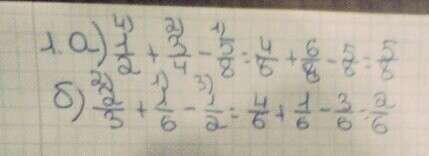 1. а) 1/2 + 3/4 - 5/8 = 4/8 + 6/8 - 5/8 = 5/8
б) 2/3 + 1/6 - 1/2 = 4/6 + 1/6 - 3/6 = 2/6